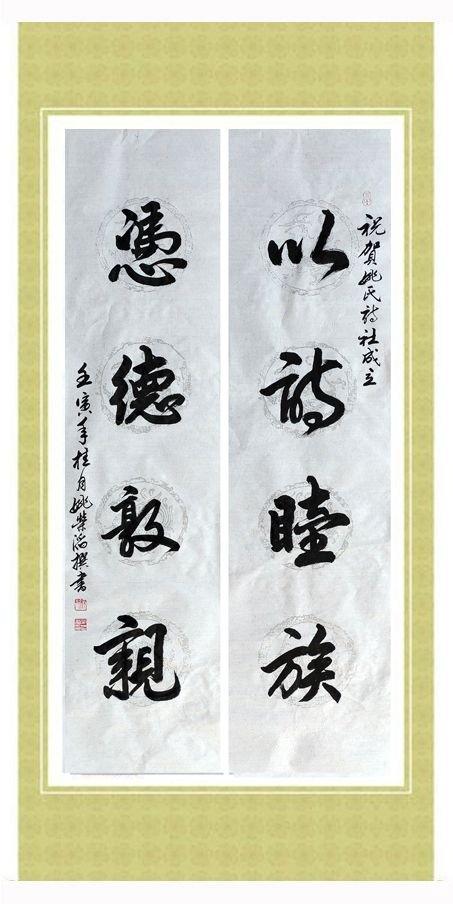 祝贺姚氏诗社成立
以诗睦族
憑德敦親
壬寅年桂月姚荣滔撰書